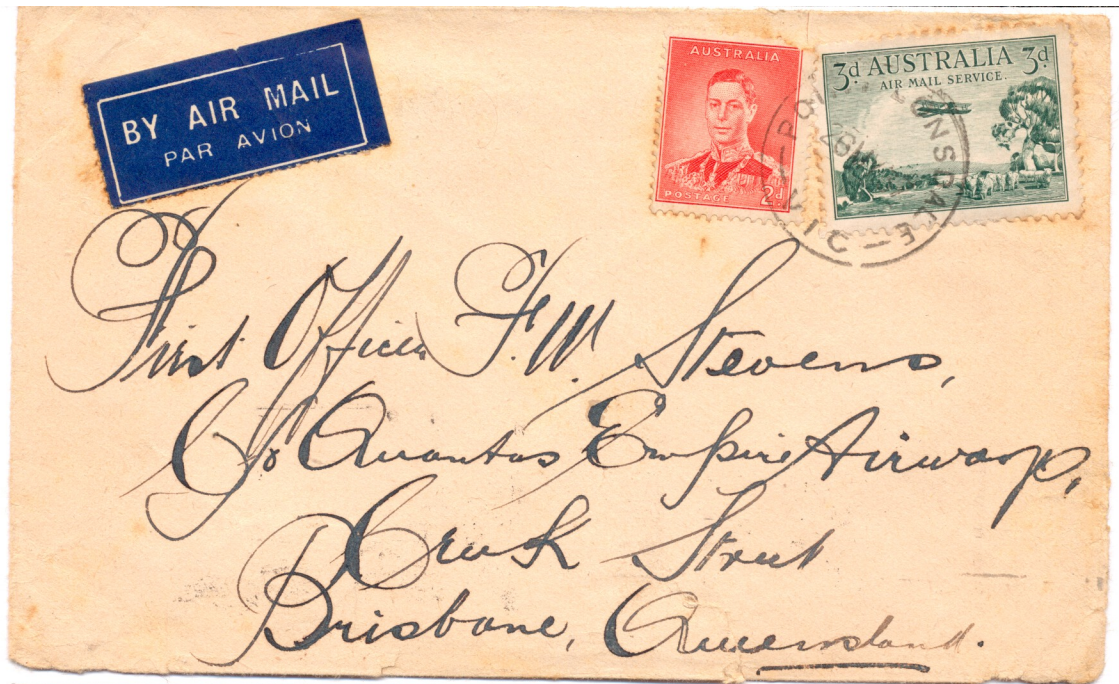 BY AIR MAIL
PAR AVION
AUSTRALIA
POSTAGE 2d
3d AUSTRALIA 3d
AIR MAIL SERVICE.
First Officer F. W. Stevens,
C/o Quantas Empire Airways,
Creek Street
Brisbane, Queensland.